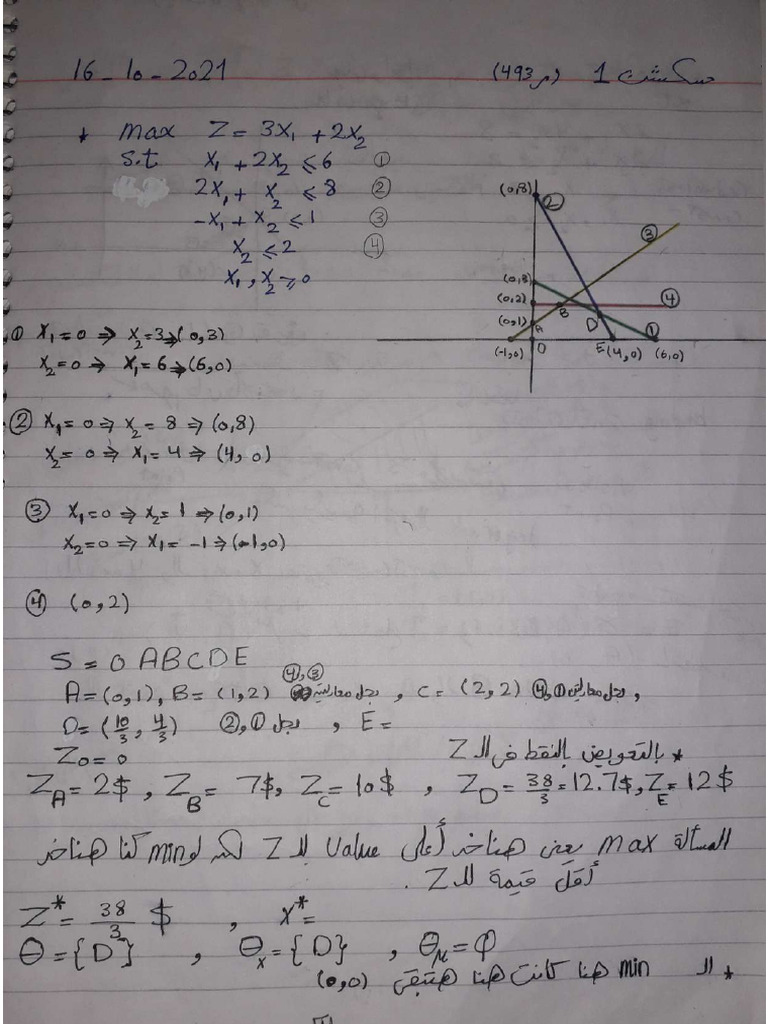 16-10-2021
سكشن 1 (ص 493)
* max Z = 3x₁ + 2x₂
s.t x₁ + 2x₂ ≤ 6 ①
2x₁ + x₂ ≤ 8 ②
-x₁ + x₂ ≤ 1 ③
x₂ ≤ 2 ④
x₁, x₂ ≥ 0
(0,8) ②
③
(0,3)
(0,2) B ④
(0,1) A D ①
(-1,0) O E(4,0) (6,0)
① x₁ = 0 ⇒ x₂ = 3 ⇒ (0,3)
x₂ = 0 ⇒ x₁ = 6 ⇒ (6,0)
② x₁ = 0 ⇒ x₂ = 8 ⇒ (0,8)
x₂ = 0 ⇒ x₁ = 4 ⇒ (4,0)
③ x₁ = 0 ⇒ x₂ = 1 ⇒ (0,1)
x₂ = 0 ⇒ x₁ = -1 ⇒ (-1,0)
④ (0,2)
S = OABCDE
A = (0,1), B = (1,2) بحل ④,③, C = (2,2) بحل ④,①,
D = (10/3, 4/3) بحل ②,①, E =
Z₀ = 0
* بالتعويض بالنقط فى الـ Z
Z_A = 2$, Z_B = 7$, Z_C = 10$, Z_D = 38/3 = 12.7$, Z_E = 12$
المسألة max يعنى هناخد أعلى Value للـ Z لكن لو min كنا هناخد
أقل قيمة للـ Z.
Z* = 38/3 $, x* =
Θ = {D}, Θₓ = {D}, Θ_M = φ
* الـ min هنا كانت هتبقى (0,0)